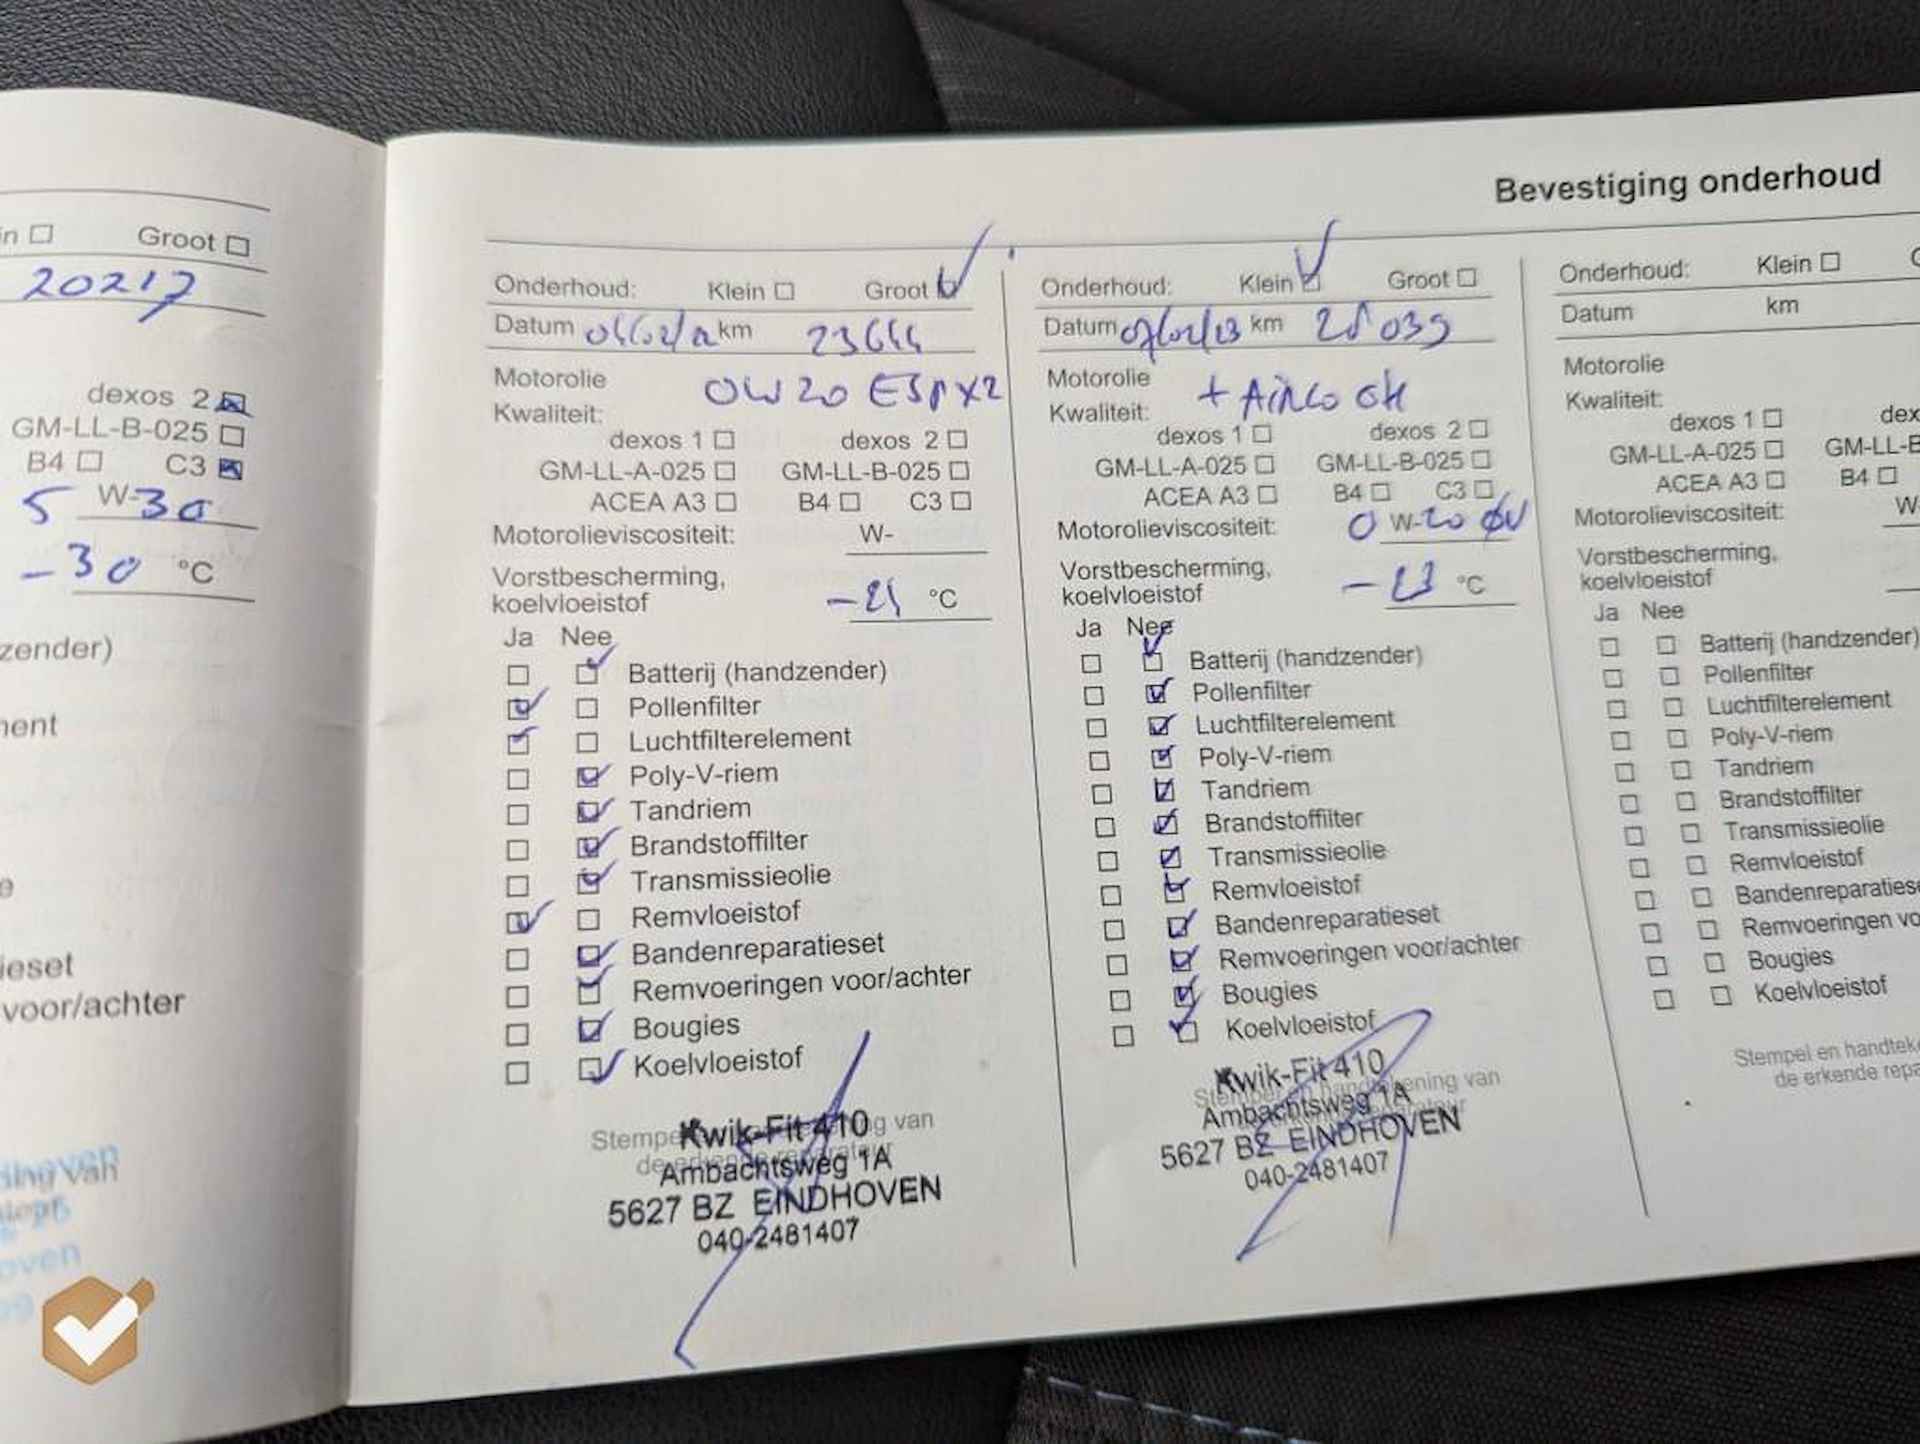 Bevestiging onderhoud
Groot
20217
dexos 2
GM-LL-B-025
B4 C3
5 W-30
-30 °C
voor/achter
Onderhoud: Klein Groot
Datum km 23644
Motorolie 0W20 ESP X2
Kwaliteit:
dexos 1 dexos 2
GM-LL-A-025 GM-LL-B-025
ACEA A3 B4 C3
Motorolieviscositeit: W-
Vorstbescherming,
koelvloeistof °C
Ja Nee
Batterij (handzender)
Pollenfilter
Luchtfilterelement
Poly-V-riem
Tandriem
Brandstoffilter
Transmissieolie
Remvloeistof
Bandenreparatieset
Remvoeringen voor/achter
Bougies
Koelvloeistof
Kwik-Fit 410
Ambachtsweg 1A
5627 BZ EINDHOVEN
040-2481407
Onderhoud: Klein Groot
Datum 07/02/23 km
Motorolie + Airco OK
Kwaliteit:
dexos 1 dexos 2
GM-LL-A-025 GM-LL-B-025
ACEA A3 B4 C3
Motorolieviscositeit: 0 W-20
Vorstbescherming,
koelvloeistof -23 °C
Ja Nee
Batterij (handzender)
Pollenfilter
Luchtfilterelement
Poly-V-riem
Tandriem
Brandstoffilter
Transmissieolie
Remvloeistof
Bandenreparatieset
Remvoeringen voor/achter
Bougies
Koelvloeistof
Kwik-Fit 410
Ambachtsweg 1A
5627 BZ EINDHOVEN
040-2481407
Onderhoud: Klein
Datum km
Motorolie
Kwaliteit:
dexos 1
GM-LL-A-025
ACEA A3 B4
Motorolieviscositeit: W-
Vorstbescherming,
koelvloeistof
Ja Nee
Batterij (handzender)
Pollenfilter
Luchtfilterelement
Poly-V-riem
Tandriem
Brandstoffilter
Transmissieolie
Remvloeistof
Remvoeringen
Bougies
Koelvloeistof
Stempel en
de erkende